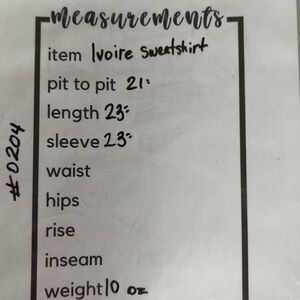 measurements
item Ivoire sweatshirt
pit to pit 21"
length 23"
sleeve 23"
waist
hips
rise
inseam
weight 10 oz
#0204